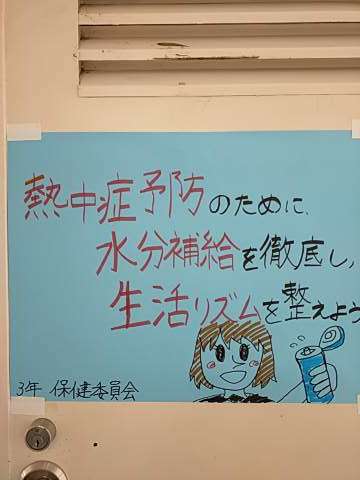 熱中症予防のために、
水分補給を徹底し、
生活リズムを整えよう
3年 保健委員会